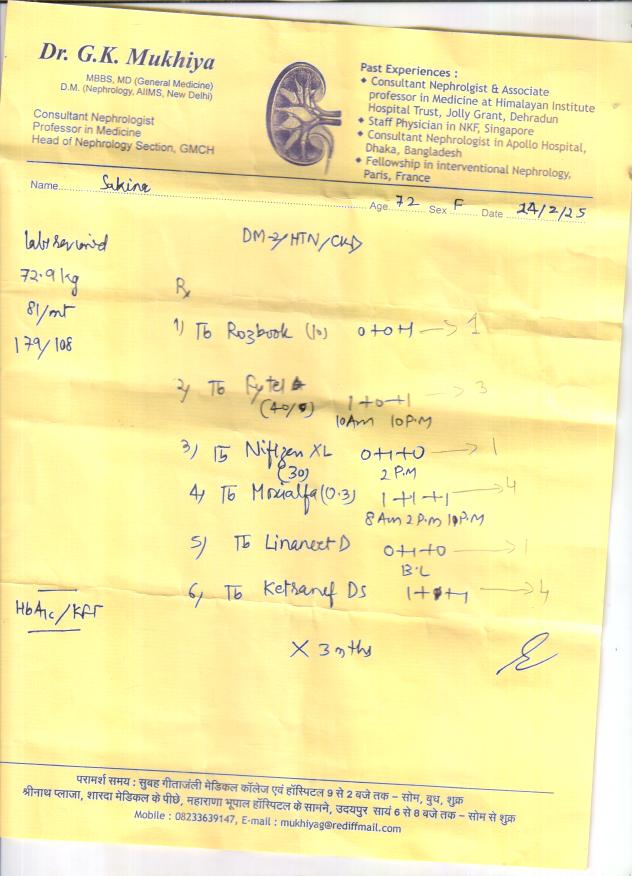 Dr. G.K. Mukhiya
MBBS, MD (General Medicine)
D.M. (Nephrology, AIIMS, New Delhi)
Consultant Nephrologist
Professor in Medicine
Head of Nephrology Section, GMCH
Past Experiences :
◆ Consultant Nephrolgist & Associate
professor in Medicine at Himalayan Institute
Hospital Trust, Jolly Grant, Dehradun
◆ Staff Physician in NKF, Singapore
◆ Consultant Nephrologist in Apollo Hospital,
Dhaka, Bangladesh
◆ Fellowship in interventional Nephrology,
Paris, France
Name Sakina Age 72 Sex F Date 24/2/25
DM-2/HTN/CKD
72.9 kg
81/mt
179/108
Rx
1) Tb Rozbook (10) 0+0+1 → 1
2) Tb (40/ ) 1+0+1 → 3
10Am 10P.M
3) Tb XL 0+1+0 → 1
(30) 2 P.M
4) Tb Moxialfa (0.3) 1+1+1 → 4
8Am 2P.M 10P.M
5) Tb D 0+1+0 → 1
B.L
6) Tb DS → 4
HbA1c/KFT
X 3 mths
परामर्श समय : सुबह गीताजंली मेडिकल कॉलेज एवं हॉस्पिटल 9 से 2 बजे तक – सोम, बुध, शुक्र
श्रीनाथ प्लाजा, शारदा मेडिकल के पीछे, महाराणा भूपाल हॉस्पिटल के सामने, उदयपुर सायं 6 से 8 बजे तक – सोम से शुक्र
Mobile : 08233639147, E-mail : mukhiyag@rediffmail.com